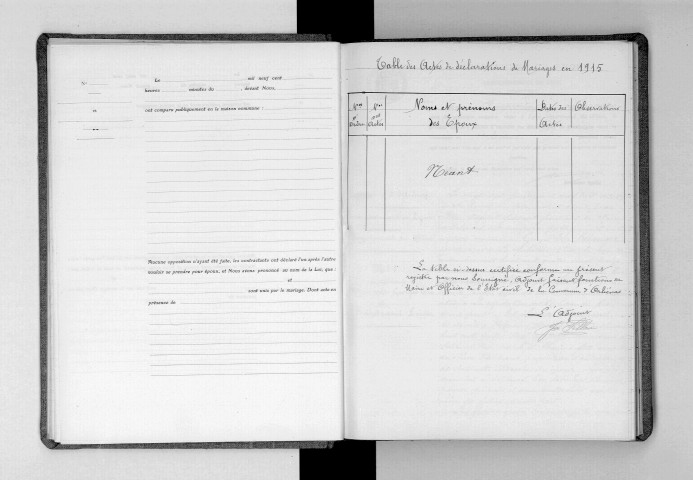 N°
Le mil neuf cent
heures minutes du devant Nous,
et
ont comparu publiquement en la maison commune :
Aucune opposition n'ayant été faite, les contractants ont déclaré l'un après l'autre
vouloir se prendre pour époux, et Nous avons prononcé au nom de la Loi, que :
et
sont unis par le mariage. Dont acte en
présence de
Table des Actes de déclarations de Mariages en 1915
Nos d'ordre
Nos des Actes
Noms et prénoms
des Epoux
Dates des
Actes
Observations
Néant
La table ci-dessus certifiée conforme au présent
registre par nous soussigné, Adjoint faisant fonctions de
Maire et Officier de l'Etat civil de la Commune d'
L'Adjoint